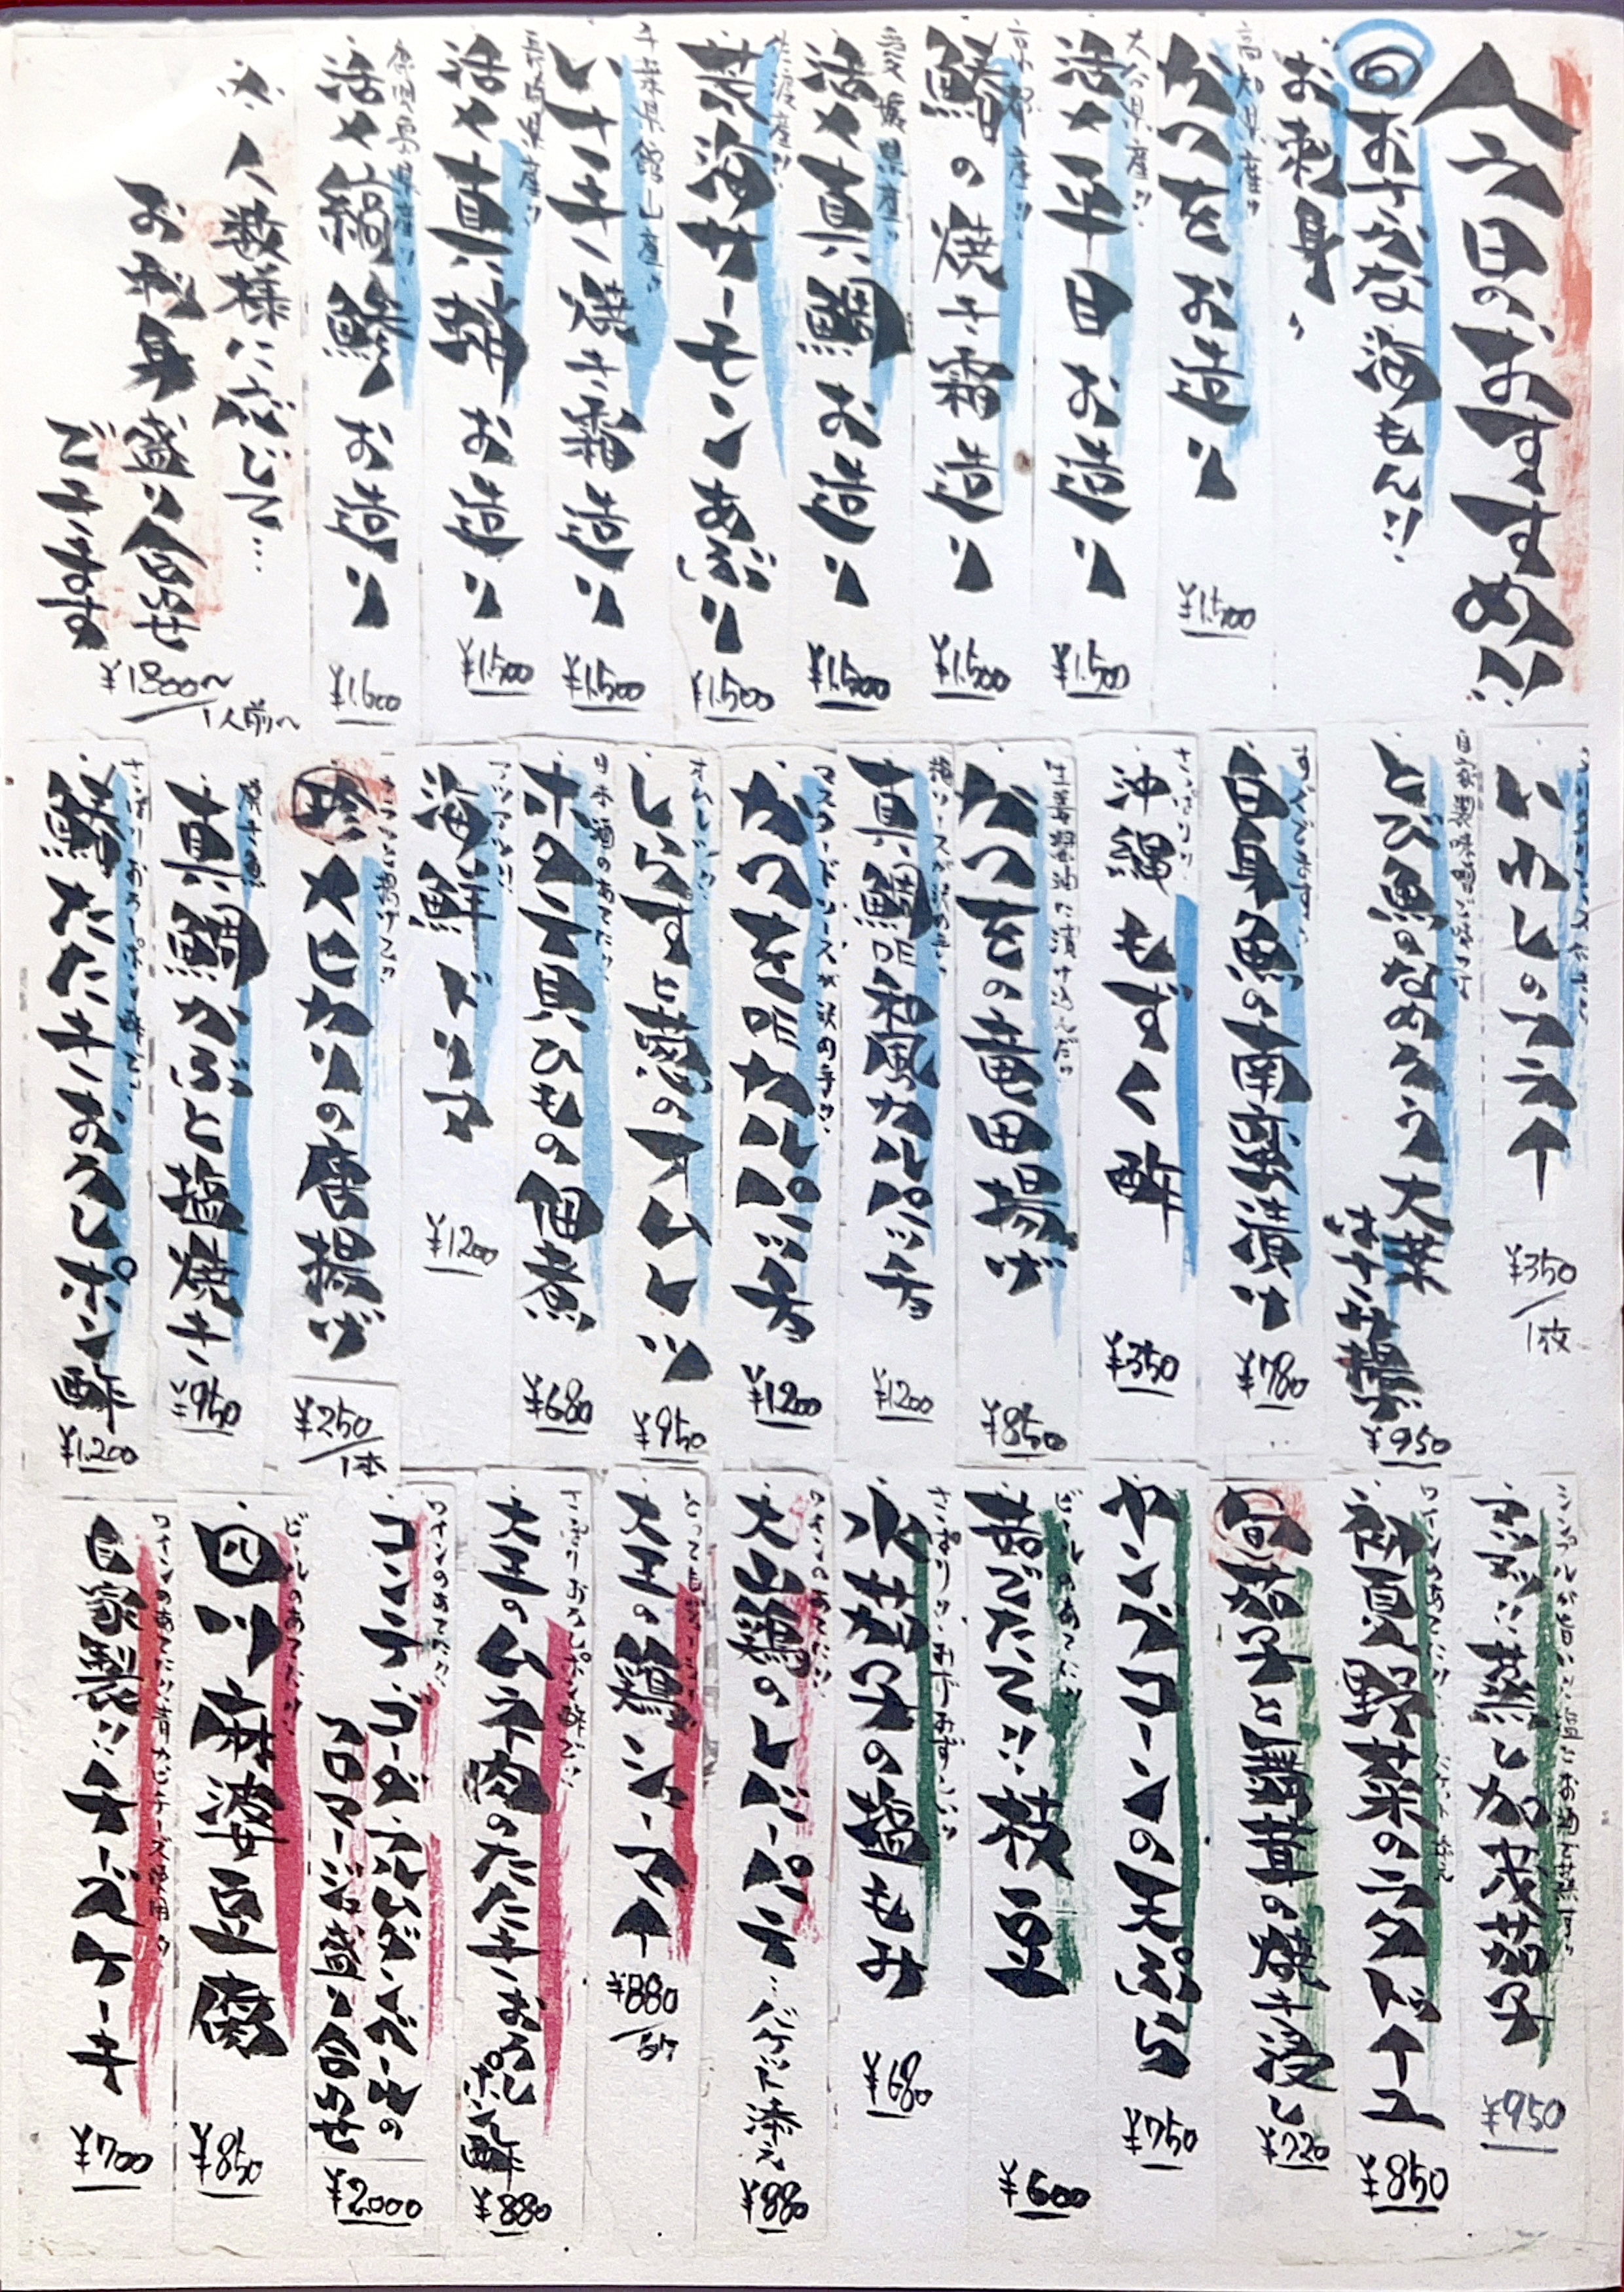 今日のおすすめ!!
旬おさかな海もん!!
お刺身、
高知県産!!
かつをお造り
¥1.500
大分県産!!
活〆平目お造り
¥1.500
京都産!!
鰆の焼き霜造り
¥1.500
愛媛県産!!
活〆真鯛お造り
¥1.500
佐渡産!!
荒海サーモンあぶり
¥1.500
千葉県館山産!!
いサキノ焼き霜造り
¥1.500
長崎県産!!
活〆真鯵お造り
¥1.500
活〆縞鯵お造り
¥1.600
人数様に応じて…
お刺身盛り合せ
できます
¥1800〜
1人前〜
いわしのフライ
¥350/1枚
自家製味噌で味つけ
とび魚のなめろう大葉
はさみ揚げ
¥950
白身魚の南蛮漬け
¥780
さっぱり!!
沖縄もずく酢
¥350
生姜醤油に漬け込んだ!!
かつをの竜田揚げ
¥850
真鯛昨和風カルパッチョ
¥1200
マスタードソースが決め手!!
かつを昨カルパッチョ
¥1200
しらすと葱のオムレツ
¥950
日本酒のあてに!!
ホタテ貝ひもの佃煮
¥680
アツアツ!!
海鮮ドリア
¥1200
珍メヒカリの唐揚げ
¥250/1本
焼き魚
真鯛かぶと塩焼き
¥950
さっぱりおろしポン酢で!!
鰆たたきおろしポン酢
¥1.200
蒸し加茂茄子
¥950
初夏野菜のラタトイユ
¥850
旬茄子と舞茸の焼き浸し
¥720
ヤングコーンの天ぷら
¥750
ビールのあてに!!
茹でたて!!枝豆
¥600
水茄子の塩もみ
¥680
ワインのあてに!!
大山鶏のレバーパテ…バケット添え
¥880
大王の鶏シューマイ
¥880
さっぱりおろしポン酢で!!
大王のムネ肉のたたきおろしポン酢
¥880
ワインのあてに!!
コンテ・ゴーダ・カムダンベールの
フロマージュ盛り合わせ
¥2.000
ビールのあてに!!
四川麻婆豆腐
¥850
ワインのあてに!!青カビチーズ使用
自家製!!チーズケーキ
¥700